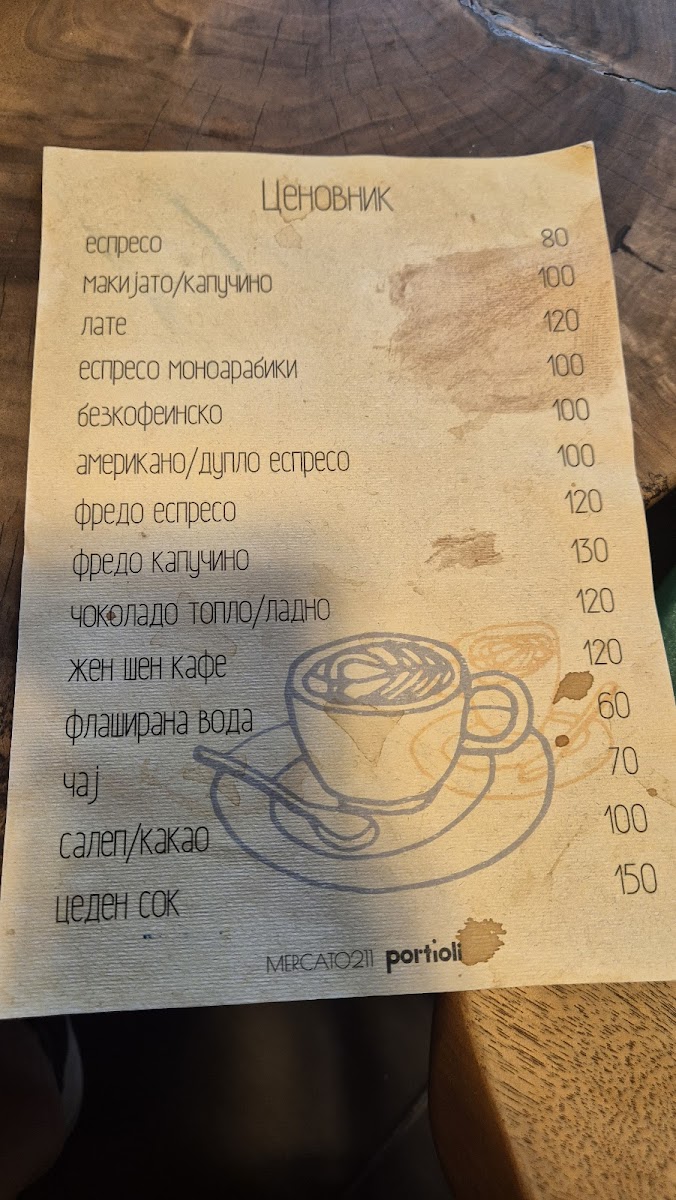 Ценовник
еспресо 80
макијато/капучино 100
лате 120
еспресо моноарабики 100
безкофеинско 100
американо/дупло еспресо 100
фредо еспресо 120
фредо капучино 130
чоколадо топло/ладно 120
жен шен кафе 120
флаширана вода 60
чај 70
салеп/какао 100
цеден сок 150
MERCATO211 portioli